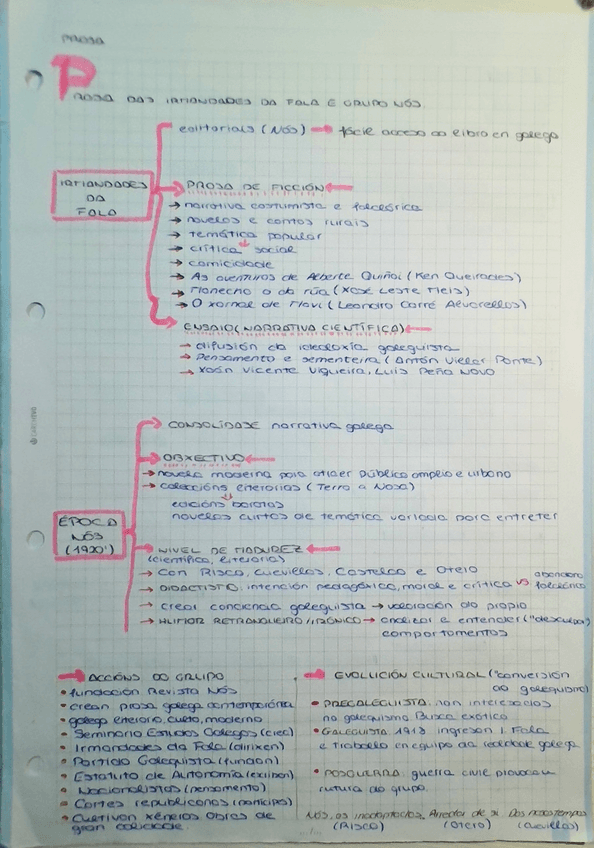 PROSA
PROSA DAS IRMANDADES DA FALA E GRUPO NÓS.
editoriais (NÓS) → fácil acceso ao libro en galego
IRMANDADES DA FALA
PROSA DE FICCIÓN ←
→ narrativa costumista e folclórica
→ novelas e contos rurais
→ temática popular
→ crítica social
→ comicidade
→ As aventuras de Alberte Quiñoi (Ken Queirades)
→ Monecho o da rúa (Xosé Lesta Meis)
→ O xornal de Mavi (Leandro Carré Alvarellos)
ENSAIO (NARRATIVA CIENTÍFICA) ←
→ difusión da ideoloxía galeguista
→ Pensamento e sementeira (Antón Villar Ponte)
→ Xoán Vicente Viqueira, Luís Peña Novo
→ CONSOLÍDASE narrativa galega
→ OBXECTIVO ←
→ novela moderna para atraer público amplo e urbano
→ coleccións literarias (Terra a Nosa)
edicións baratas
novelas curtas de temática variada para entreter
ÉPOCA NÓS (1920')
→ NIVEL DE MADUREZ ←
(científica, literaria)
→ Con Risco, Cuevillas, Castelao e Otero
→ DIDACTISTO, intención pedagóxica, moral e crítica vs abandono folclórico
→ crear conciencia galeguista → valoración do propio
→ HUMOR RETRANQUEIRO / IRÓNICO → analizar e entender ("desculpa") comportamentos
→ ACCIÓNS DO GRUPO
• fundación Revista NÓS
• crean prosa galega contemporánea
• galego literario, culto, moderno
• Seminario Estudos Galegos (crean)
• Irmandades da Fala (dirixen)
• Partido Galeguista (fundan)
• Estatuto de Autonomía (escriben)
• Nacionalistas (pensamento)
• Cortes republicanas (participa)
• Cultivan xéneros obras de gran calidade.
→ EVOLUCIÓN CULTURAL ("conversión ao galeguismo)
• PREGALEGUISTA: non interesados no galeguismo. Busca exótico
• GALEGUISTA 1918 ingresan I. Fala e traballo en equipo da realidade galega
• POSGUERRA: guerra civil provocou rutura do grupo.
Nós, os inadaptados, Arredor de si, Dos nosos tempos
(Risco) (Otero) (Cuevillas)